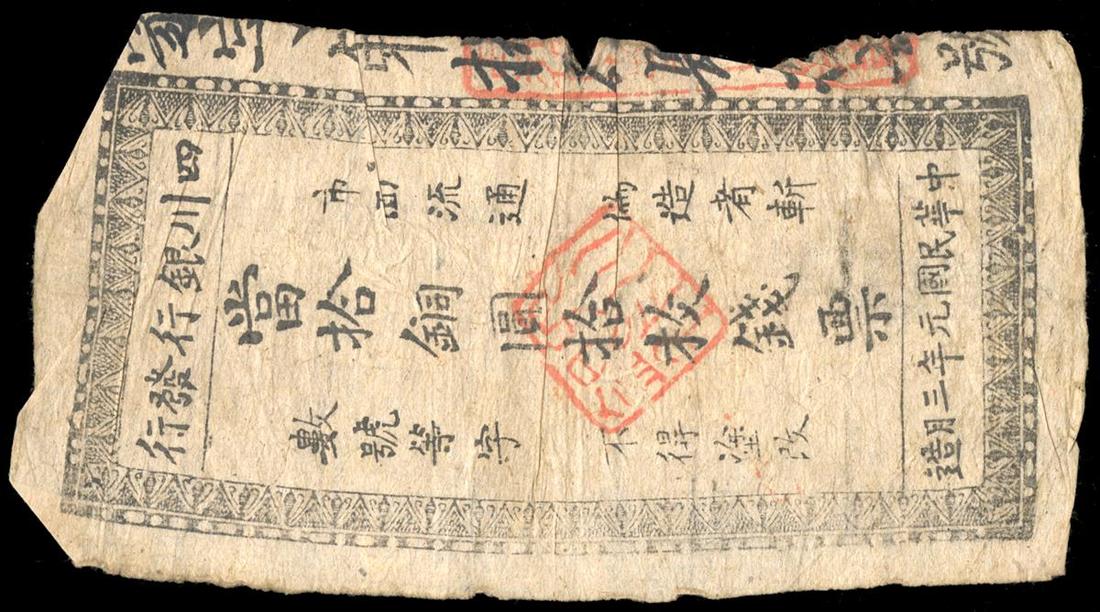 四川銀行發行
市面流通 偽造者斬
當拾銅圓拾枚錢票
數號等字 不得塗改
中華民國元年三月造